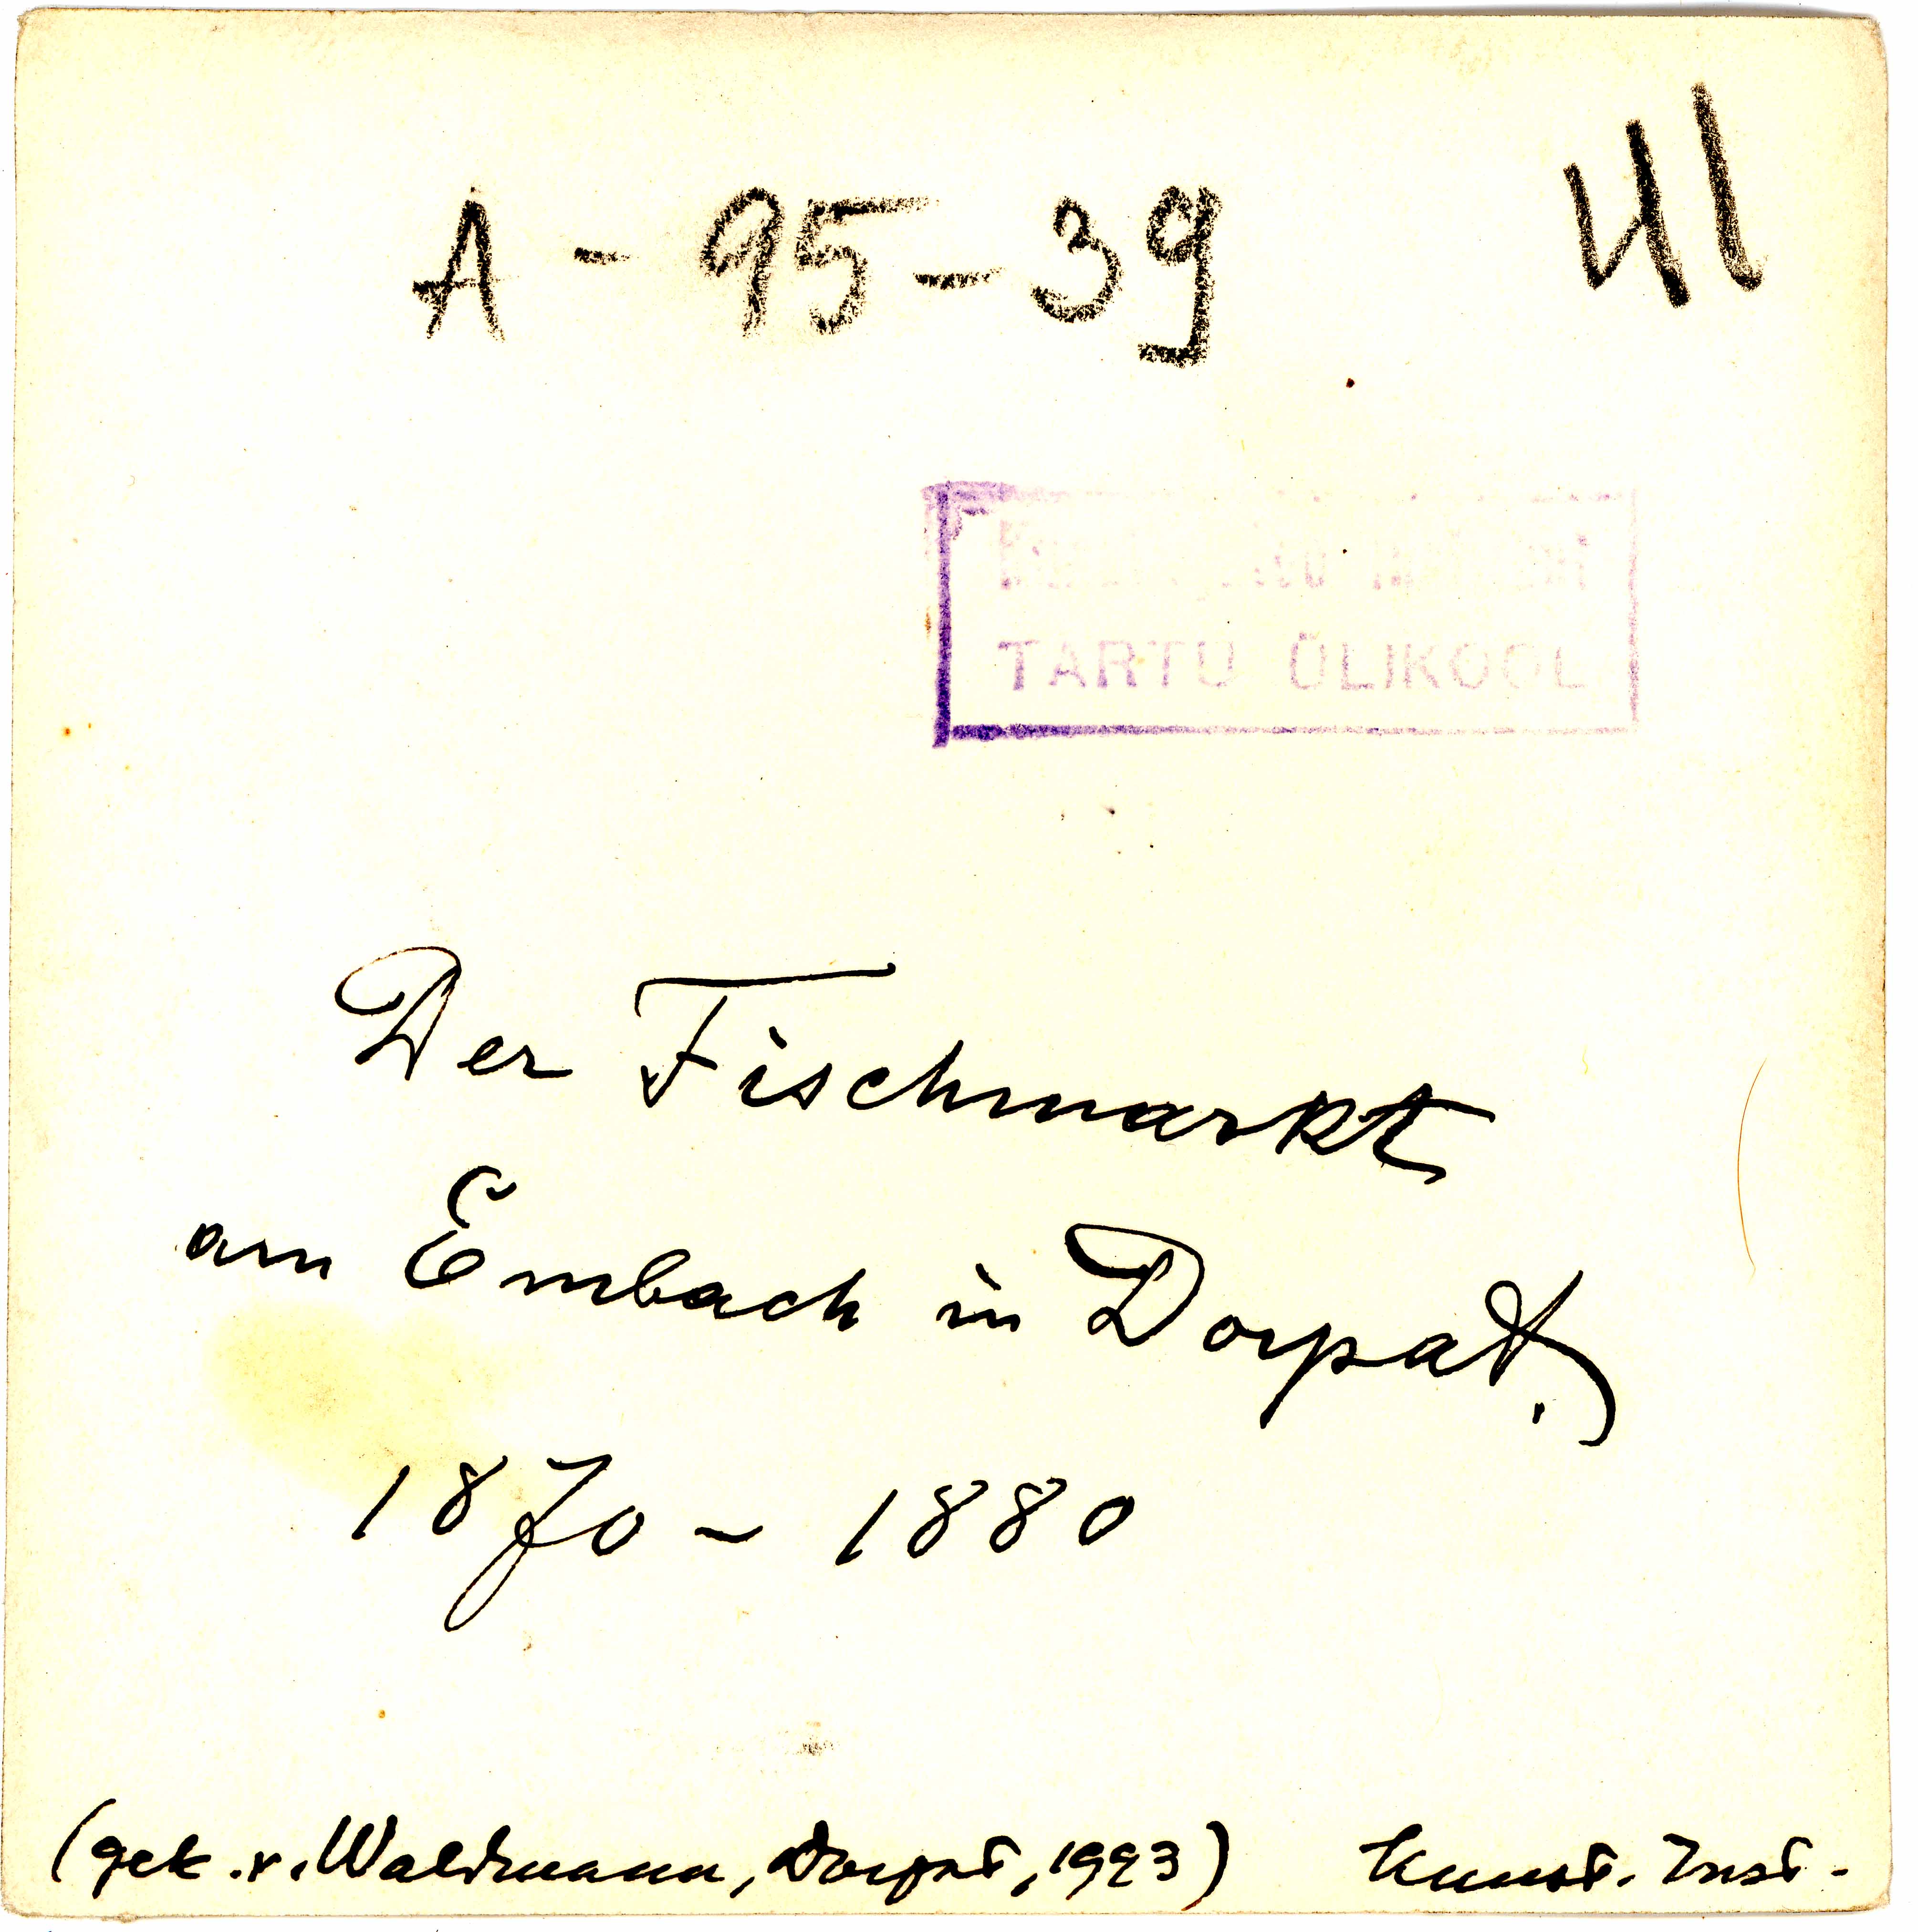 41
A - 95 - 39
TARTU ÜLIKOOL
Der Fischmarkt
am Embach in Dorpat.
1870 - 1880
(gek. v. Waldmann, Dorpat, 1923) Kunst. Inst.